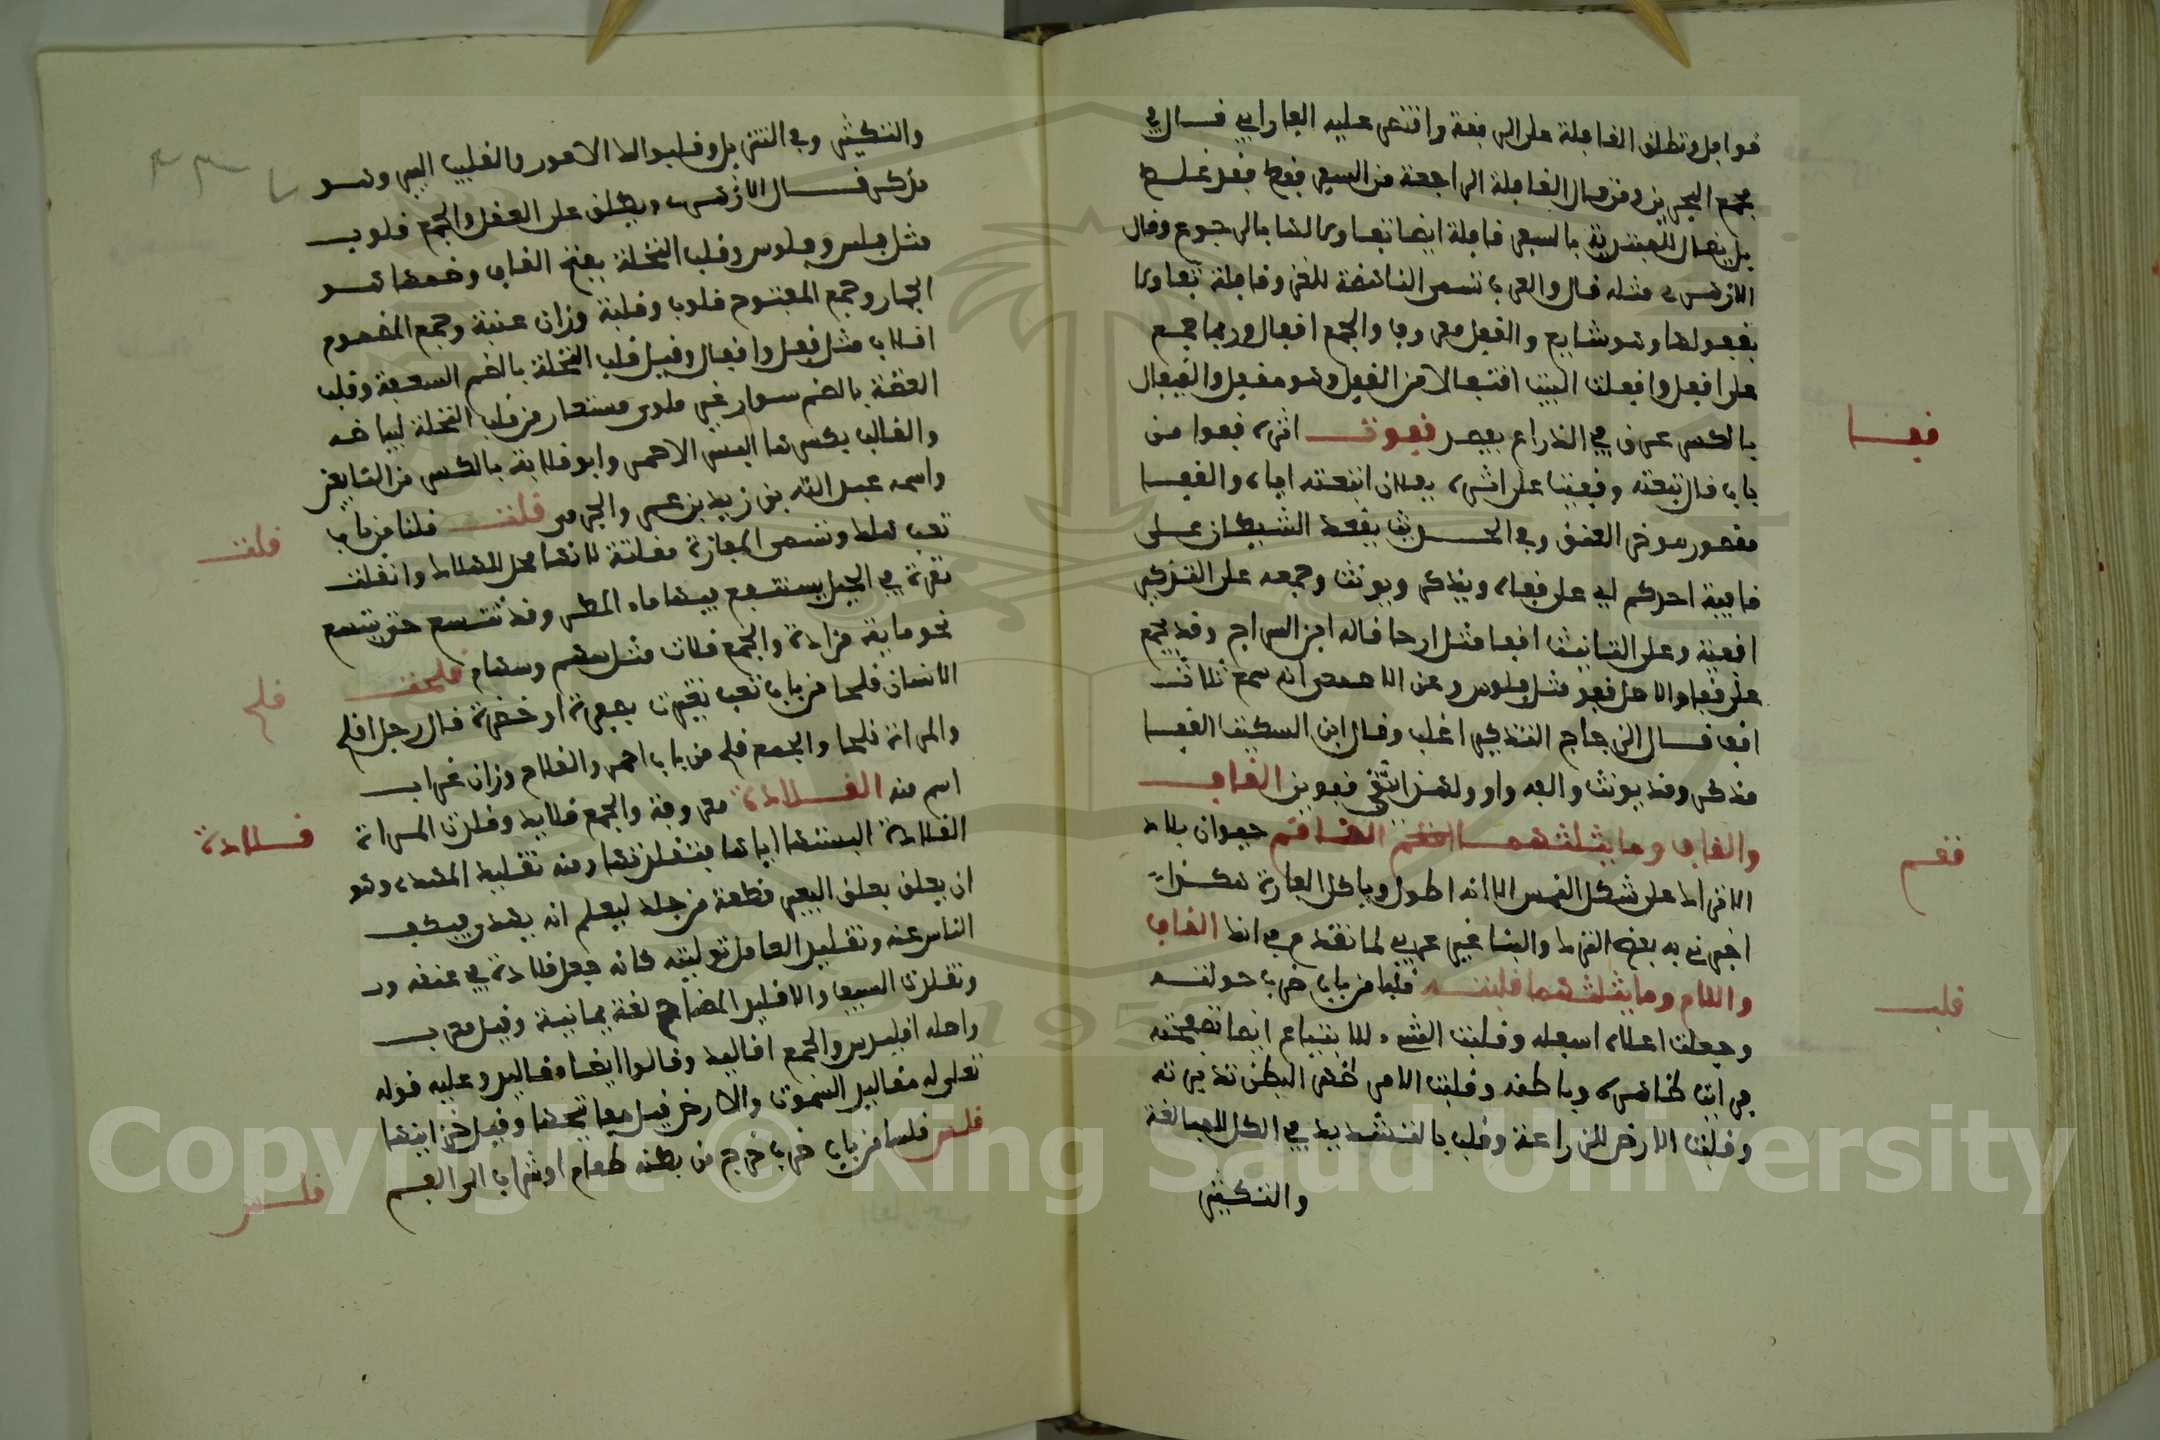 قوافل وتطلق القافلة على الرفقة واقتصر عليه الفارابي قال في
مجمع البحرين ومن قال القافلة الراجعة من السفر فقط فقد غلط
بل يقال للمبتدية بالسفر قافلة ايضا تفاولا لها بالرجوع وقال
الازهري مثله قال والعرب تسمى الناهضة للغزو قافلة تفاولا
بقفولها وهو شايع والقفل معروف والجمع اقفال وربما جمع
على اقفل واقفلت البيت اقفالا من القفل وهو مقفل والقيفال
بالكسر عرق في الذراع يفصد قفوت اثره قفوا من
باب قال تبعته وقفيت على اثره بفلان اتبعته اياه والقفا
مقصور موخر العنق وفي الحديث يعقد الشيطان على
قافية احدكم اي على قفاه ويذكر ويونث وجمعه على التذكير
اقفية وعلى التانيث اقفا مثل ارحا قاله ابن السراج وقد يجمع
على قفي والاصل قفو مثل فلوس وعن الاصمعي انه سمع ثلاث
اقف قال الزجاج التذكير اغلب وقال ابن السكيت القفا
مذكر وقد يونث والفه واو ولهذا يثنى قفوين القاف
والقاف وما يثلثهما ققم القاقم حيوان ببلاد
الاتراك على شكل الفارة الا انه اطول وياكل الفارة هكذا
اخبرني به بعض الترك والبنا غير عربي لما تقدم في انك القاف
واللام وما يثلثهما قلبته قلبا من باب ضرب حولته
وجعلت اعلاه اسفله وقلبت الشيء للابتياع ايضا تصفحته
فرايت ظاهره وباطنه وقلبت الامر ظهر البطن تدبرته
وقلبت الارض للزراعة وقلب بالتشديد في الكل للمبالغة
والتكثير
قفا
ققم
قلب
والتكثير وفي التنزيل وقلبوا لك الامور والقليب البير وهو
مذكر قال الازهري ويطلق على العقل والجمع قلوب
مثل فلس وفلوس وقلب النخلة بفتح القاف وضمها هو
الجمار وجمع المفتوح قلوب وقلبة وزان عنبة وجمع المضموم
اقلاب مثل قفل واقفال وقيل قلب النخلة بالضم السعفة وقلب
الفضة بالضم سوار غير ملوى مستعار من قلب النخلة لبياضه
والقالب بكسرها البسر الاحمر وابو قلابة بالكسر من التابعين
واسمه عبد الله بن زيد بن عمر والجرمى قلت قلتا من باب
تعب هلك وتسمى المفازة مقلتة لانها محل للهلاك والقلت
نقرة في الجبل يستنقع فيها ماء المطر وقد تتسع حتى تسع
نحو ماية مزادة والجمع قلات مثل سهم وسهام قلحت
الاسنان قلحا من باب تعب تغيرت بصفرة او خضرة قال رجل اقلح
والمراة قلحا والجمع قلح من باب احمر والقلاح وزان غراب
اسم منه القلادة معروفة والجمع قلايد وقلدت المراة
القلادة البستها اياها فتقلدتها ومنه تقليد الهدي وهو
ان يعلق بعنق البعير قطعة من جلد ليعلم انه هدي فيكف
الناس عنه وتقليد العامل توليته كانه جعل قلادة في عنقه و
تقلدت السيف والاقليد المفتاح لغة يمانية وقيل معرب
واصله اقليدس والجمع اقاليد وقالوا ايضا مقاليد وعليه قوله
تعلى له مقاليد السموت والارض قيل مفاتيحها وقيل خزاينها
قلس قلسا من باب ضرب خرج من بطنه طعام او شراب الى الفم
قلت
قلح
قلادة
قلس